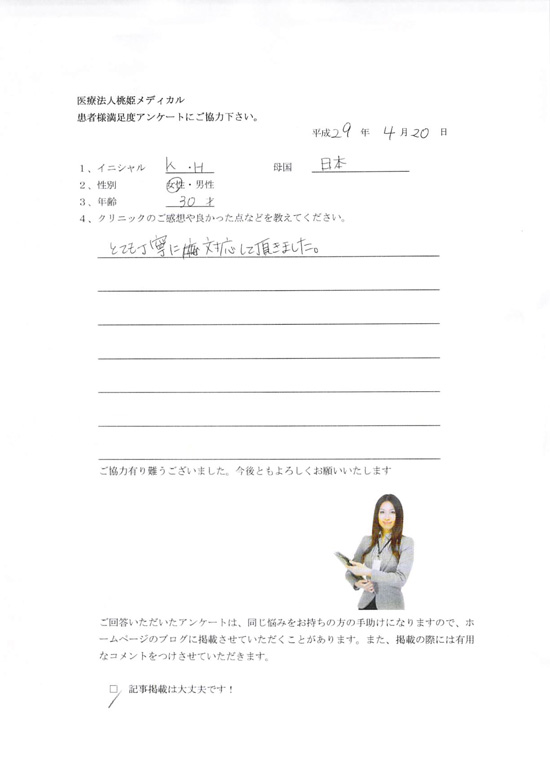 医療法人桃姫メディカル
患者様満足度アンケートにご協力下さい。
平成29年 4月20日
1、イニシャル K・H 母国 日本
2、性別 女性・男性
3、年齢 30才
4、クリニックのご感想や良かった点などを教えてください。
とても丁寧に対応して頂きました。
ご協力有り難うございました。今後ともよろしくお願いいたします
ご回答いただいたアンケートは、同じ悩みをお持ちの方の手助けになりますので、ホ
ームページのブログに掲載させていただくことがあります。また、掲載の際には有用
なコメントをつけさせていただきます。
□ 記事掲載は大丈夫です！